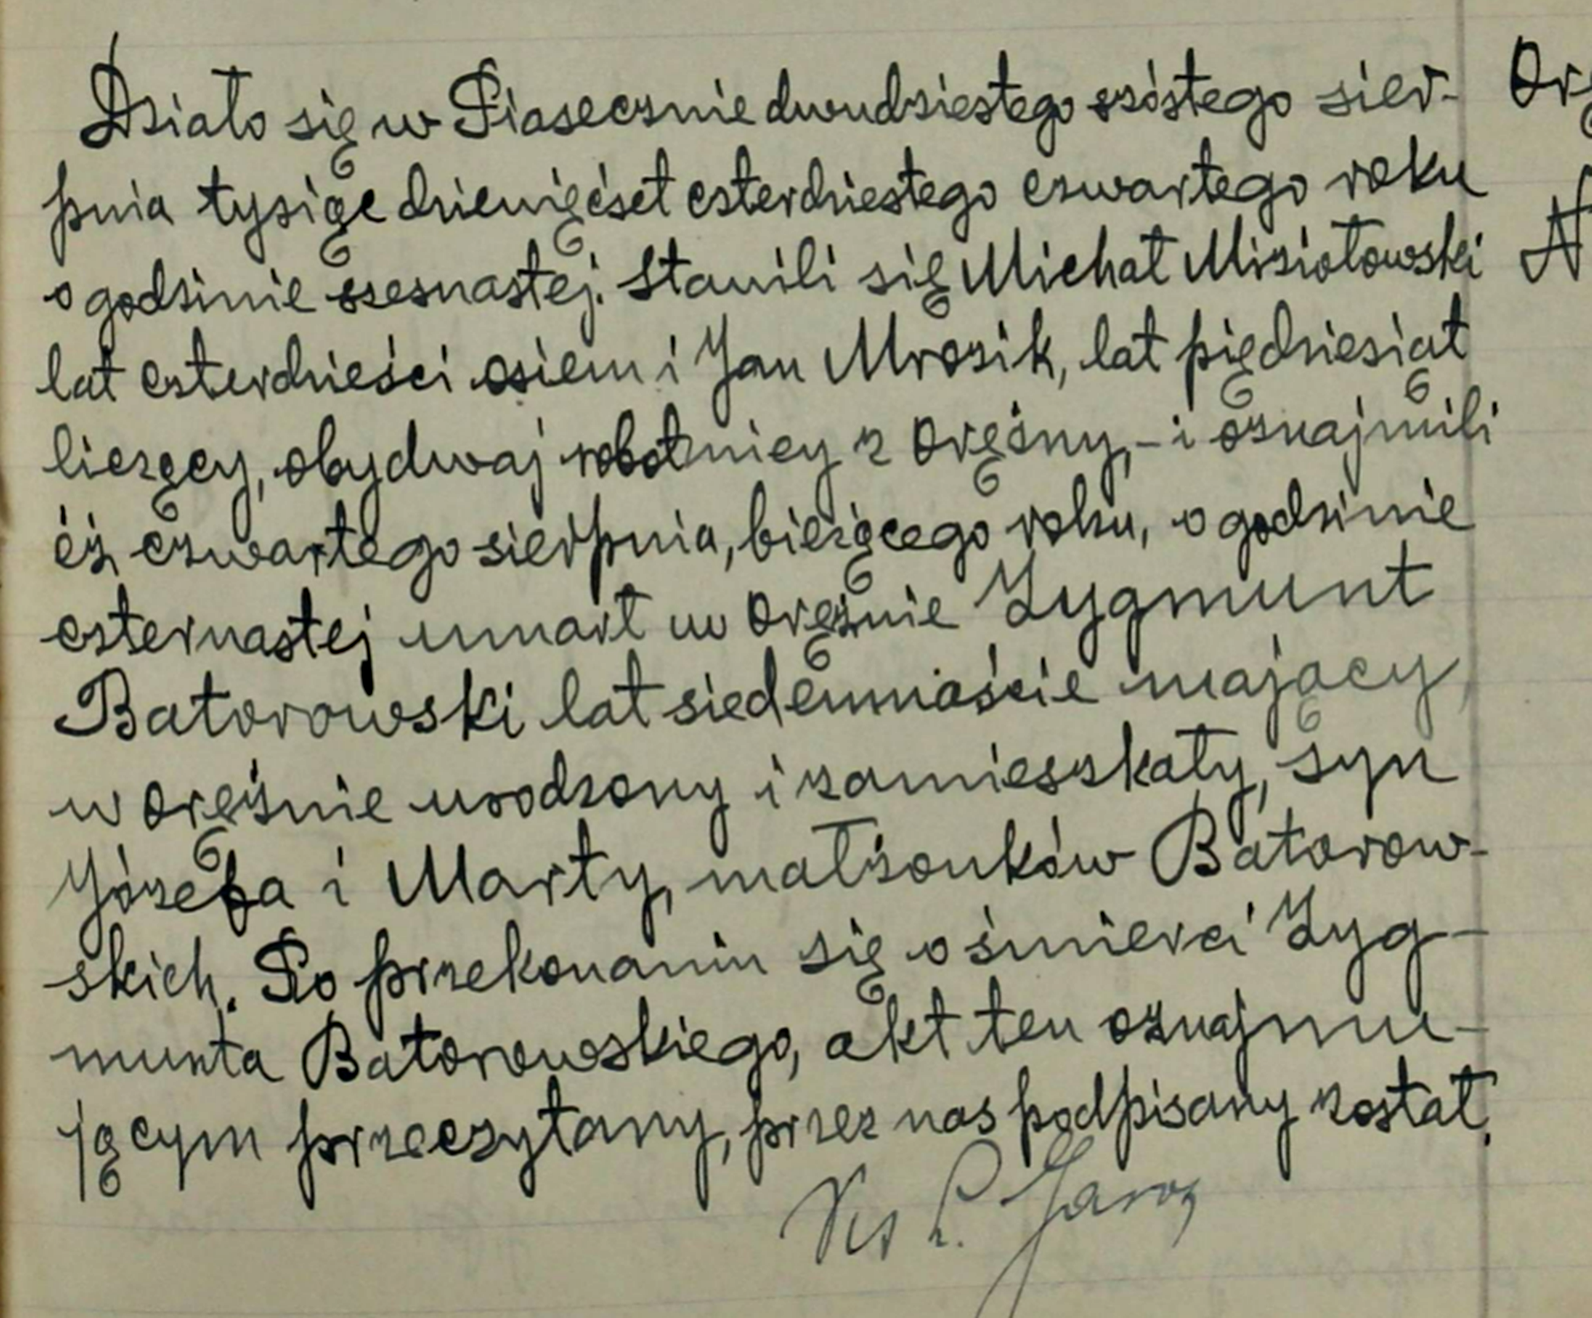 Działo się w Piasecznie dwudziestego szóstego sier-
pnia tysiąc dziewięćset czterdziestego czwartego roku
o godzinie szesnastej. Stawili się Michał Misiołowski
lat czterdzieści osiem i Jan Mrozik, lat piędziesiąt
liczący, obydwaj robotnicy z Orężny, - i oznajmili
iż czwartego sierpnia, bieżącego roku, o godzinie
czternastej umarł w Oreżnie Zygmunt
Batorowski lat siedemnaście mający,
w Orężnie urodzony i zamieszkały, syn
Józefa i Marty, małżonków Batorow-
skich. Po przekonaniu się o śmierci Zyg-
munta Batorowskiego, akt ten oznajmu-
jącym przeczytany, przez nas podpisany został.
Ks P. Jaroz